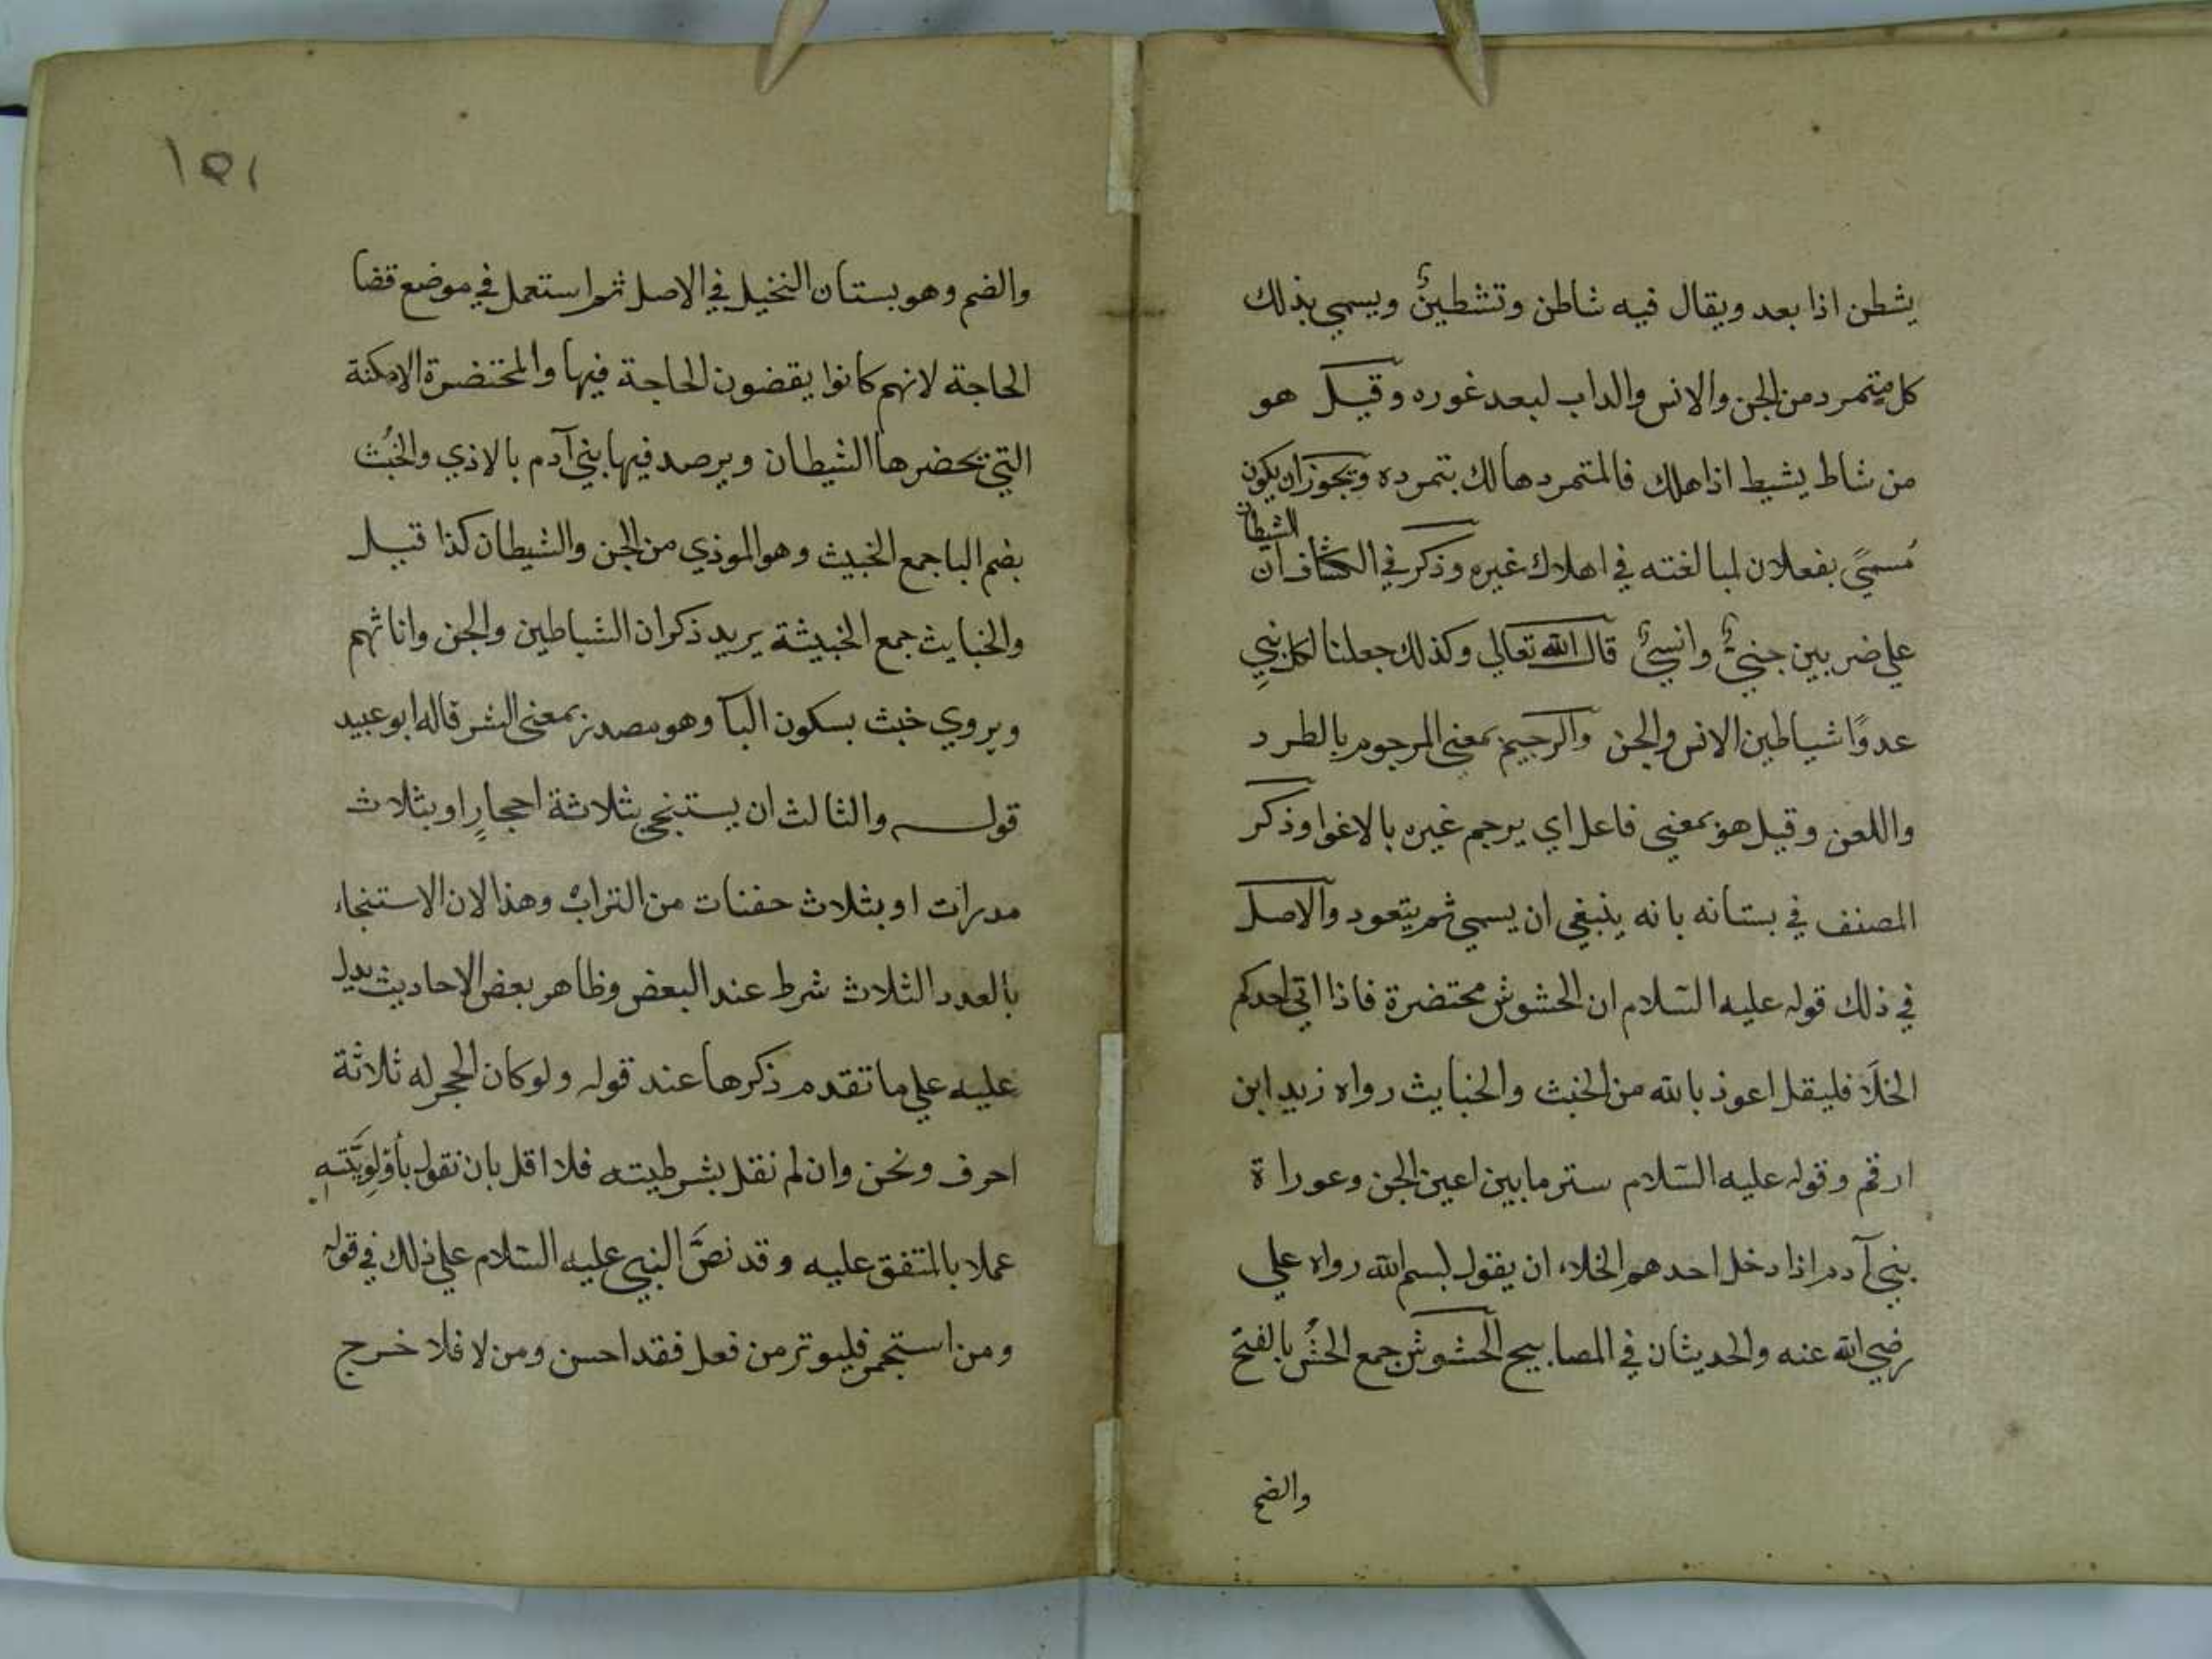 يشطن اذا بعد ويقال فيه شاطن وتشطين ويسمي بذلك
كل متمرد من الجن والانس والداب لبعد غوره وقيل هو
من شاط يشيط اذا هلك فالمتمرد هالك بتمرده ويجوز ان يكون
مُسميً بفعلان لمبالغته في اهلاك غيره وذكر في الكشاف ان الشيطان
علي ضربين جنيٌ وانسيٌ قال الله تعالي وكذلك جعلنا لكل نبيٍ
عدوًا شياطين الانس والجن والرجيم بمعني المرجوم بالطرد
واللعن وقيل هو بمعني فاعل اي يرجم غيره بالاغوا وذكر
المصنف في بستانه بانه ينبغي ان يسمي ثم يتعود والاصل
في ذلك قوله عليه السّلام ان الحشوش محتضرة فاذا اتي احدكم
الخلآ فليقل اعوذ بالله من الخبث والخبايث رواه زيد ابن
ارقم وقوله عليه السّلام ستر ما بين اعين الجن وعوراة
بني آدم اذا دخل احدهم الخلاء ان يقول بسم الله رواه علي
رضي الله عنه والحديثان في المصابيح الحشوش جمع الحُش بالفتح
والضم
١٥١
والضم وهو بستان النخيل في الاصل ثم استعمل في موضع قضا
الحاجة لانهم كانوا يقضون الحاجة فيها والمحتضرة الامكنة
التي تحضرها الشيطان ويرصد فيها بني آدم بالاذي والخبُث
بضم الباجمع الخبيث وهو الموذي من الجن والشيطان كذا قيل
والخبايث جمع الخبيثة يريد ذكران الشياطين والجن واناثهم
ويروي خبث بسكون البآ وهو مصدر بمعني الشر قاله ابو عبيد
قوله والثالث ان يستنجي بثلاثة احجارٍ او بثلاث
مدرات او بثلاث حفنات من التراب وهذا لان الاستنجاء
بالعدد الثلاث شرط عند البعض وظاهر بعض الاحاديث يدل
عليه علي ما تقدم ذكرها عند قوله ولو كان الحجر له ثلاثة
احرف ونحن وان لم نقل بشرطيته فلا اقل بان نقول بأولويَّته
عملا بالمتفق عليه وقد نصَّ النبي عليه السّلام علي ذلك في قوله
ومن استجمر فليوتر من فعل فقد احسن ومن لا فلا خرج